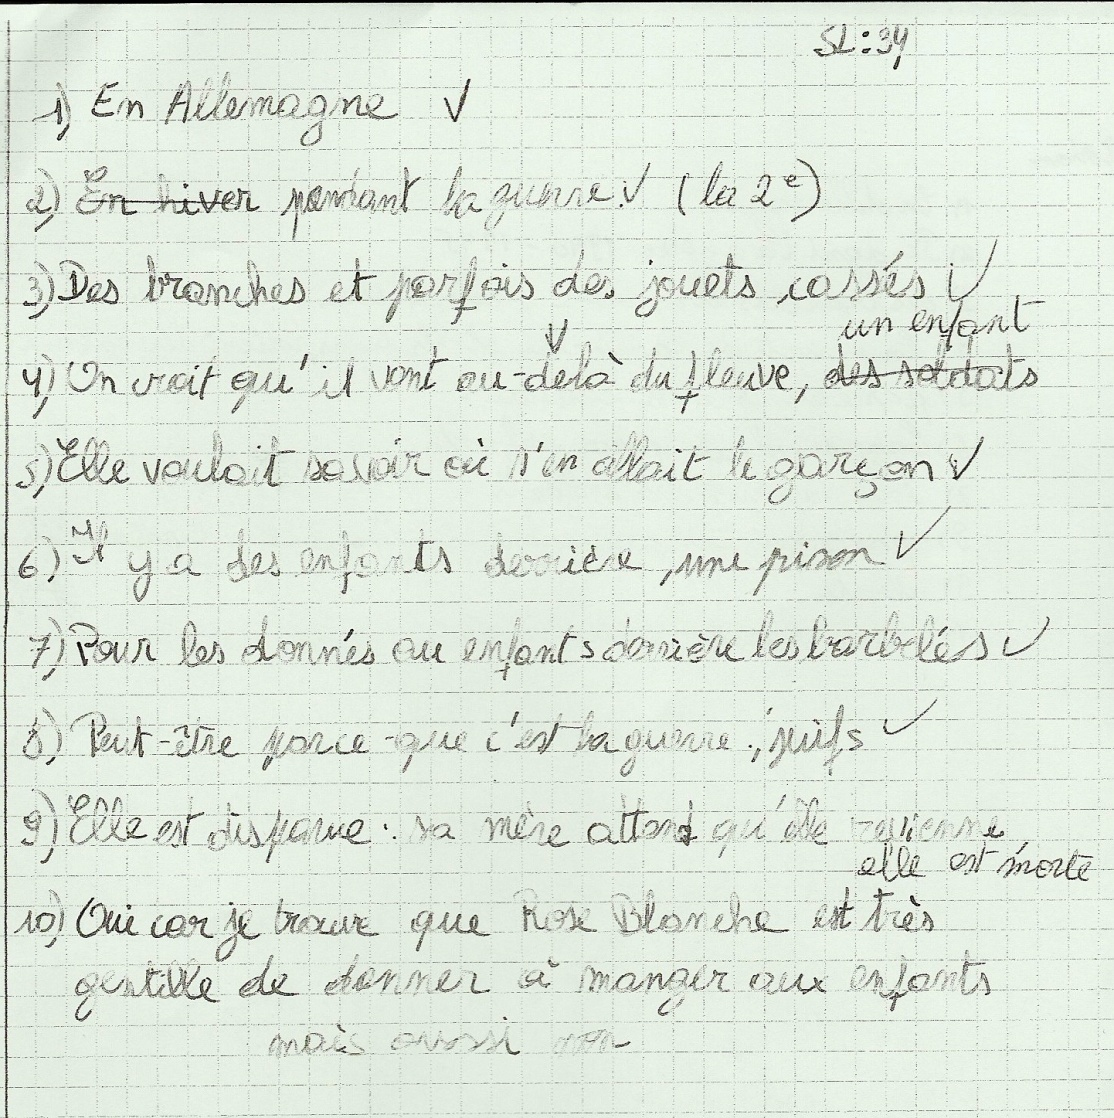 SL:34
1) En Allemagne √
2) En hiver pendant la guerre. √ (la 2e)
3) Des branches et parfois des jouets cassés √
un enfant
4) On croit qu'il vont au-delà du fleuve, des soldats √
5) Elle voulait savoir où s'en allait le garçon √
6) Il y a des enfants derrière, une prison √
7) Pour les donnés au enfants derrière les barbelés √
8) Peut-être parce-que c'est la guerre., juifs √
9) Elle est disparue. sa mère attend qu'elle revienne
elle est morte
10) Oui car je trouve que Rose Blanche est très
gentille de donner à manger aux enfants
mais aussi non